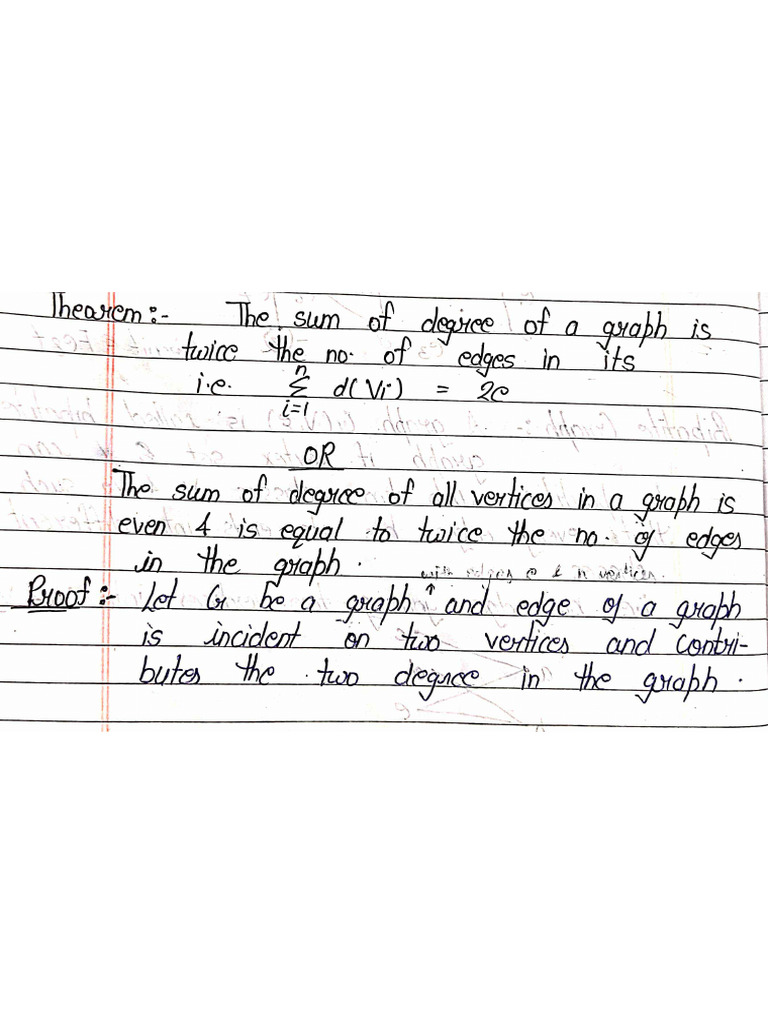 Thearem:- The sum of degree of a graph is
twice the no. of edges in its
i.e. n∑i=1 d(Vi) = 2e
OR
The sum of degree of all vertices in a graph is
even & is equal to twice the no. of edges
in the graph.
with edges e & n vertices.
Proof:- Let G be a graph↑ and edge of a graph
is incident on two vertices and contri-
butes the two degree in the graph.